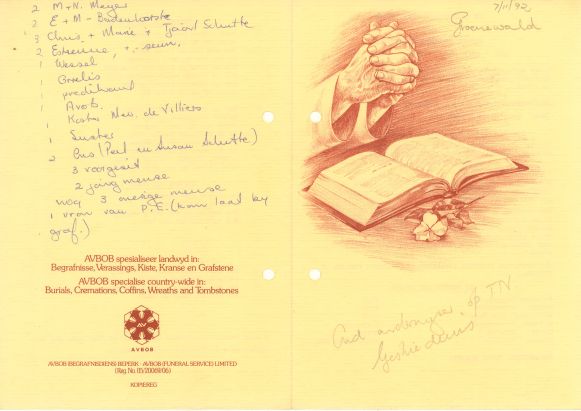 2 M+N. Meyer
2 E + M - Badenhorste
3 Chris, + Marie + Tjaart Schutte
2 Estienne, + seun.
1 Wessel
1
1 predikant
1 Avob.
1 Koster Mev. de Villiers
1 Suster
2 Ons (Piet en Susan Schutte)
3 voorgesit
2 jong mense
nog 3 mense
1 vrou van P.E. (kom laat by
graf.)
AVBOB spesialiseer landwyd in:
Begrafnisse, Verassings, Kiste, Kranse en Grafstene
AVBOB specialise country-wide in:
Burials, Cremations, Coffins, Wreaths and Tombstones
AV
AVBOB
AVBOB (BEGRAFNISDIENS) BEPERK · AVBOB (FUNERAL SERVICE) LIMITED
(Reg. No. 05/20069/06)
KOPIEREG
7/11/92
Groenewald
Oud onderwyser, op TN
Geskiedenis